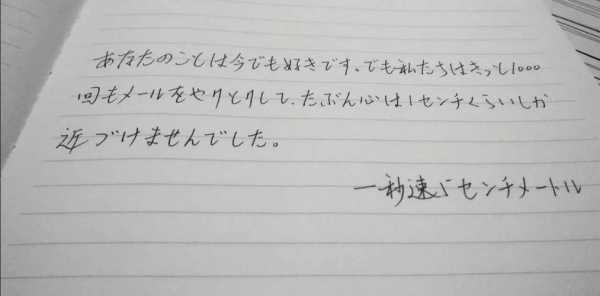 あなたのことは今でも好きです、でも私たちはきっと1000
回もメールをやりとりして、たぶん心は1センチくらいしか
近づけませんでした。
一秒速5センチメートル